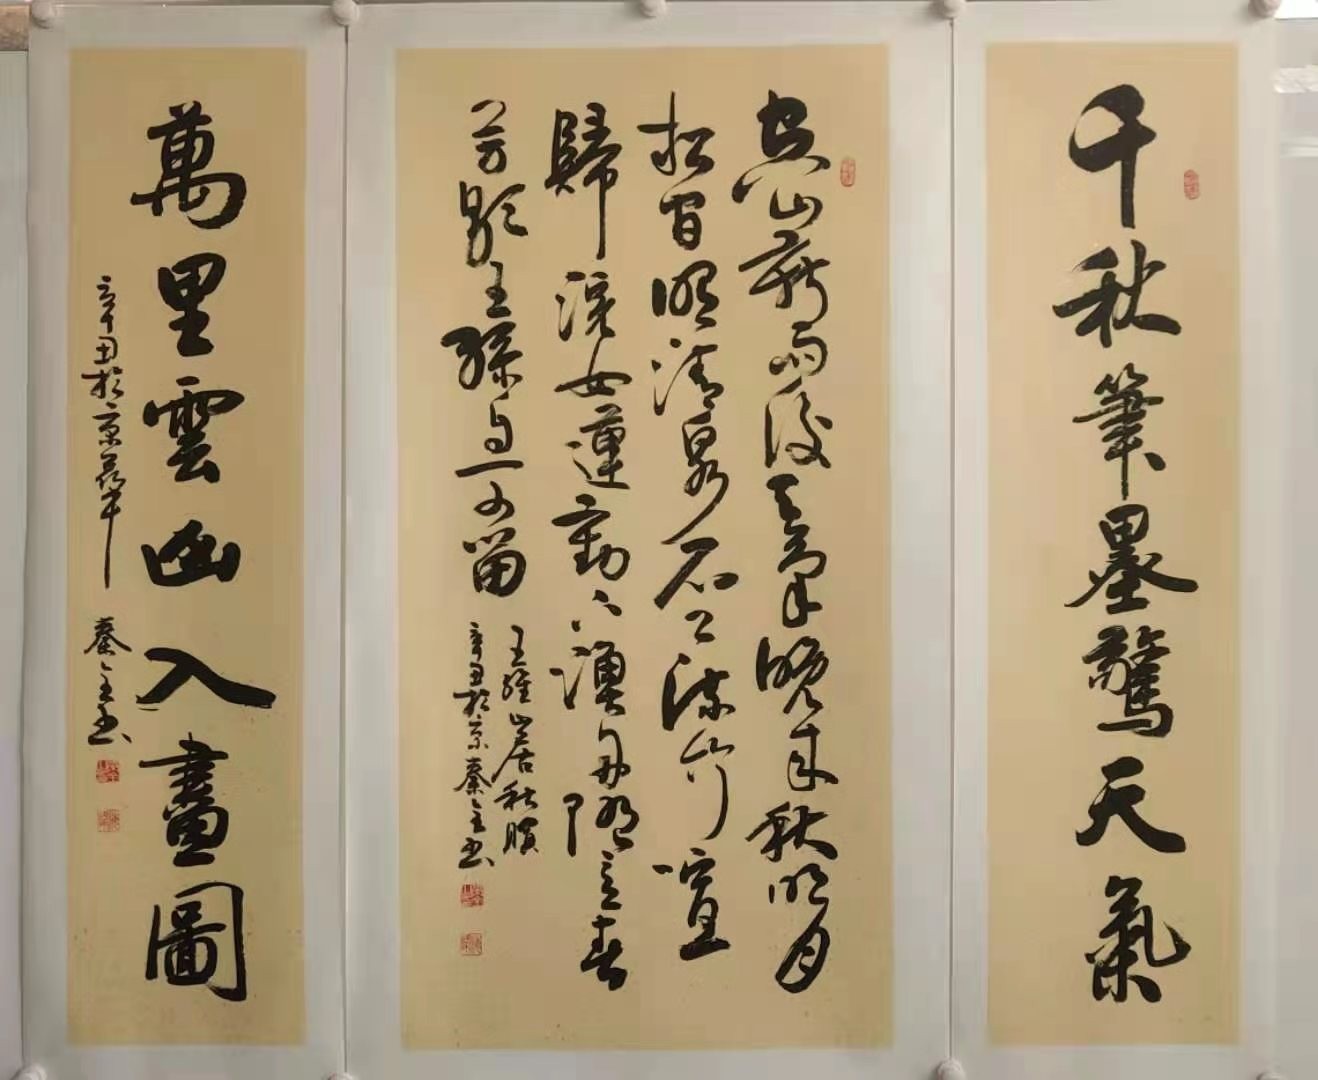 千秋筆墨驚天氣
空山新雨後天氣晚來秋明月
松間照清泉石上流竹喧
歸浣女蓮動下漁舟隨意春
芳歇王孫自可留
王維山居秋暝
辛丑於京秦書
萬里雲山入畫圖
辛丑於京秦書